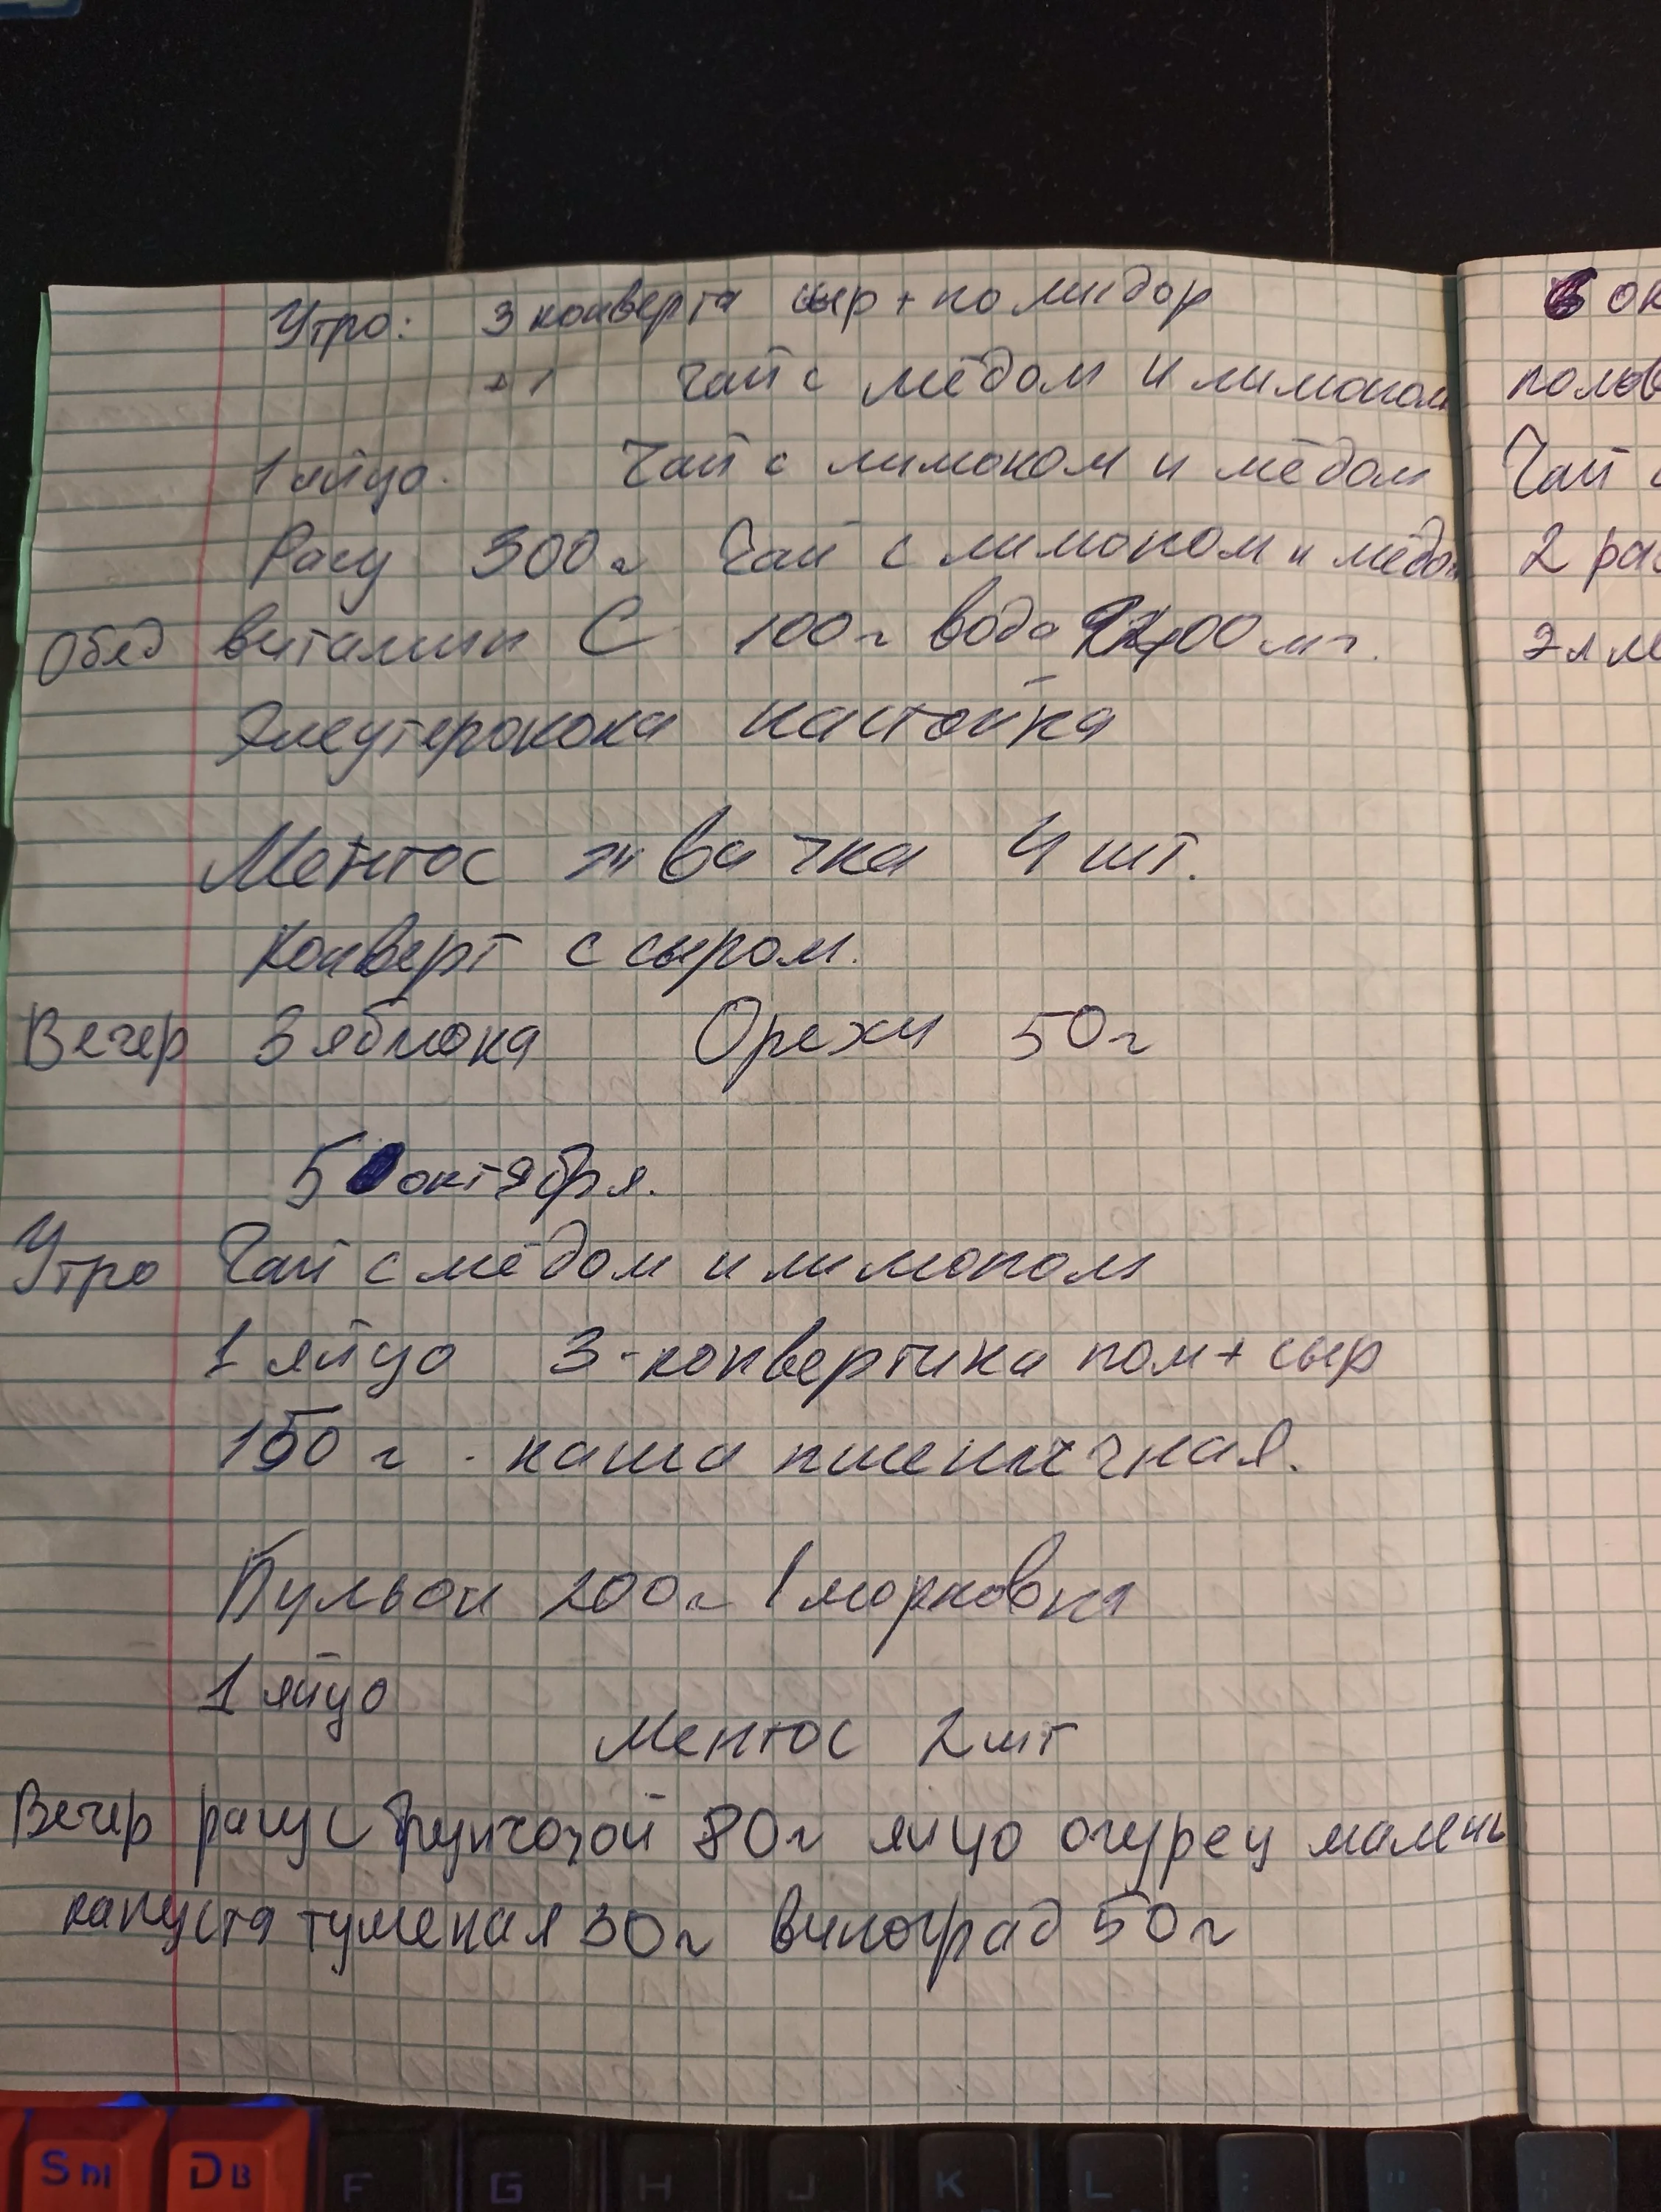 Утро: 3 конверта сыр + помидор
+ 1 чай с мёдом и лимоном
1 яйцо. Чай с лимоном и мёдом
Рагу 300г Чай с лимоном и мёдом
Обед витамин С 100г вода 00 мг.
Элеутерокока настойка
Ментос жвачка 4 шт.
Конверт с сыром.
Вечер 3 яблока Орехи 50г
5 октября.
Утро Чай с мёдом и лимоном
1 яйцо 3-конвертика пом + сыр
150 г. каша пшеничная.
Бульон 200г 1 морковка
1 яйцо
Ментос 2шт
Вечер рагу с фунчозой 80г яйцо огурец малень
капуста тушеная 30г виноград 50г
6 ок
полов
Чай с
2 ра